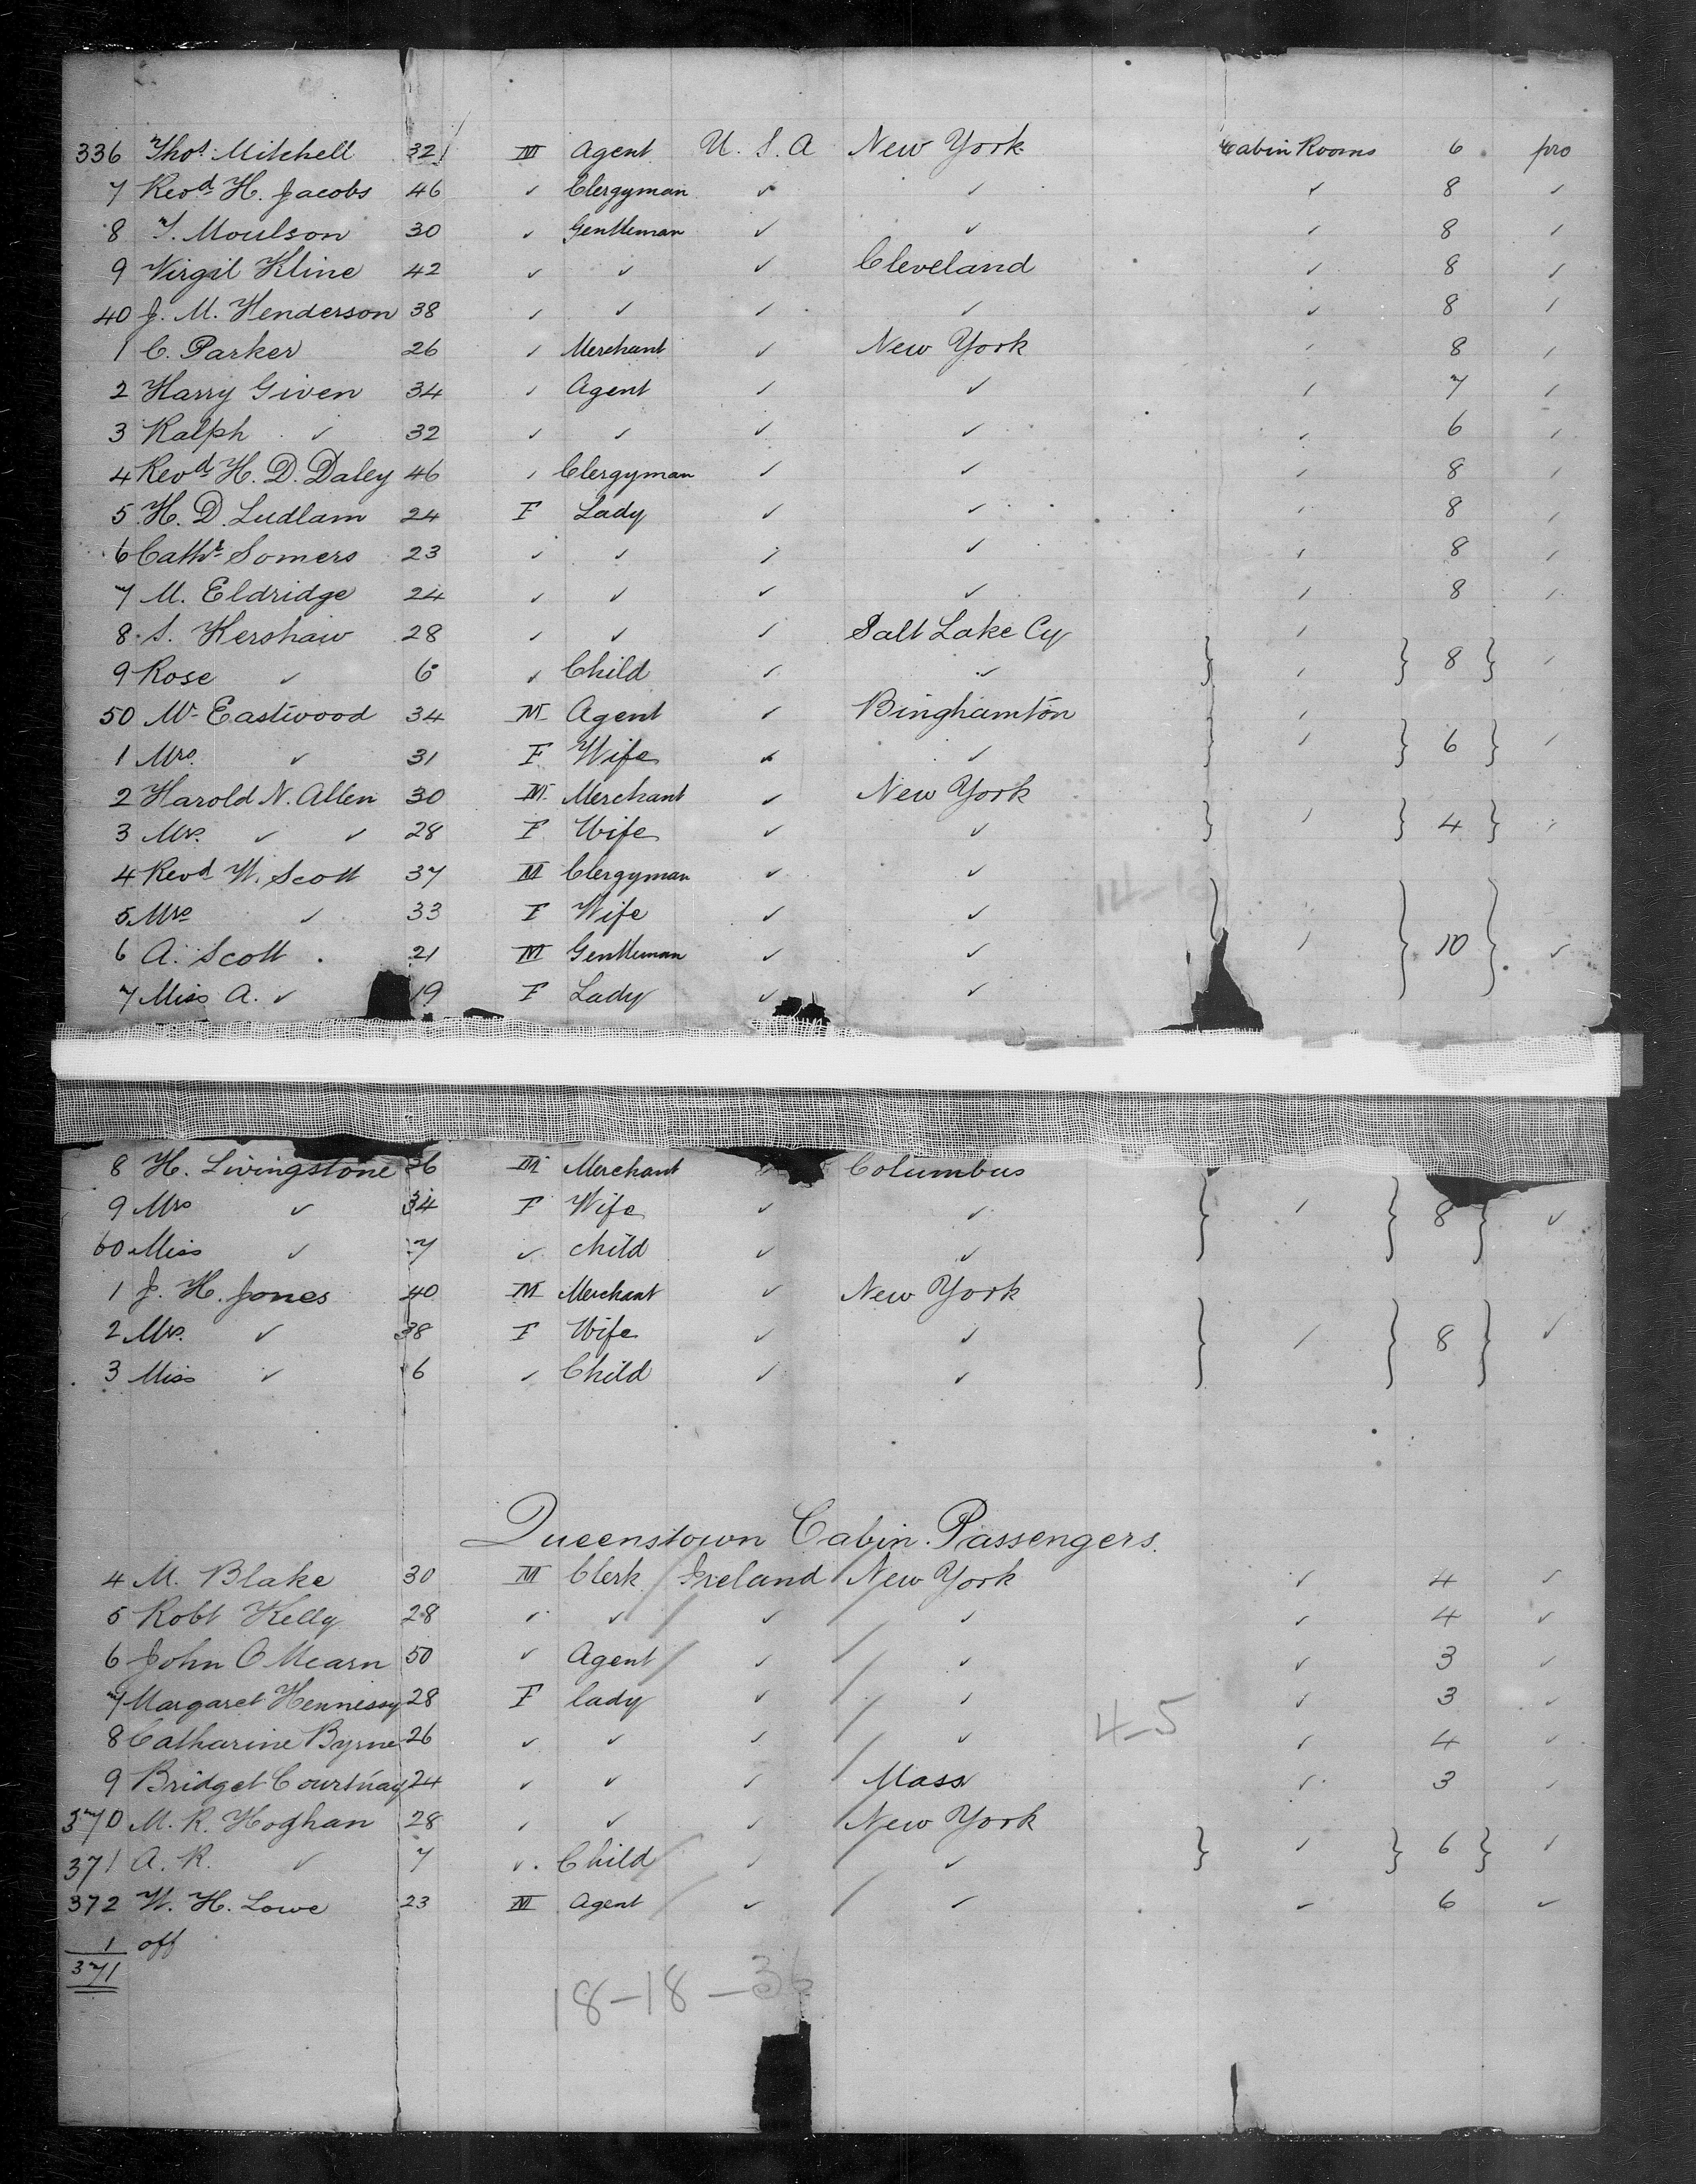 336 Thos Mitchell 32 M Agent U. S. A New York Cabin Rooms 6 pro
7 Revd H. Jacobs 46 ✓ Clergyman ✓ ✓ ✓ 8 ✓
8 T. Moulson 30 ✓ Gentleman ✓ ✓ ✓ 8 ✓
9 Virgil Kline 42 ✓ ✓ ✓ Cleveland ✓ 8 ✓
40 J. M. Henderson 38 ✓ ✓ ✓ ✓ ✓ 8 ✓
1 C. Parker 26 ✓ Merchant ✓ New York ✓ 8 ✓
2 Harry Given 34 ✓ Agent ✓ ✓ ✓ 7 ✓
3 Ralph ✓ 32 ✓ ✓ ✓ ✓ ✓ 6 ✓
4 Revd H. D. Daley 46 ✓ Clergyman ✓ ✓ ✓ 8 ✓
5 H. D. Ludlam 24 F Lady ✓ ✓ ✓ 8 ✓
6 Cathe Somers 23 ✓ ✓ ✓ ✓ ✓ 8 ✓
7 M. Eldridge 24 ✓ ✓ ✓ ✓ ✓ 8 ✓
8 S. Kershaw 28 ✓ ✓ ✓ Salt Lake Cy ✓
9 Rose ✓ 6 ✓ Child ✓ ✓ } ✓ } 8 } ✓
50 Mr Eastwood 34 M Agent ✓ Binghamton ✓
1 Mrs ✓ 31 F Wife ✓ ✓ } ✓ } 6 } ✓
2 Harold N. Allen 30 M Merchant ✓ New York
3 Mrs. ✓ ✓ 28 F Wife ✓ ✓ } ✓ } 4 } ✓
4 Revd W. Scott 37 M Clergyman ✓ ✓
5 Mrs ✓ 33 F Wife ✓ ✓
6 A. Scott 21 M Gentleman ✓ ✓ } ✓ } 10 } ✓
7 Miss A. ✓ 19 F Lady ✓ ✓
8 H. Livingstone 36 M Merchant Columbus
9 Mrs ✓ 34 F Wife ✓ ✓ } ✓ } 8 } ✓
60 Miss ✓ 7 ✓ child ✓ ✓
1 J. H. Jones 40 M Merchant ✓ New York
2 Mrs. ✓ 38 F Wife ✓ ✓ } ✓ } 8 } ✓
3 Miss ✓ 6 ✓ Child ✓ ✓
Queenstown Cabin Passengers.
4 M. Blake 30 M Clerk Ireland New York ✓ 4 ✓
5 Robt Kelly 28 ✓ ✓ ✓ ✓ ✓ 4 ✓
6 John O Mearn 50 ✓ Agent ✓ ✓ ✓ 3 ✓
7 Margaret Hennessy 28 F lady ✓ ✓ ✓ 3 ✓
4-5
8 Catharine Byrne 26 ✓ ✓ ✓ ✓ ✓ 4 ✓
9 Bridget Courtnay 24 ✓ ✓ ✓ Mass ✓ 3 ✓
370 M. R. Hoghan 28 ✓ ✓ ✓ New York
371 A. R. ✓ 7 ✓ Child ✓ ✓ } ✓ } 6 } ✓
372 W. H. Lowe 23 M Agent ✓ ✓ ✓ 6 ✓
1 off
371
18-18-36